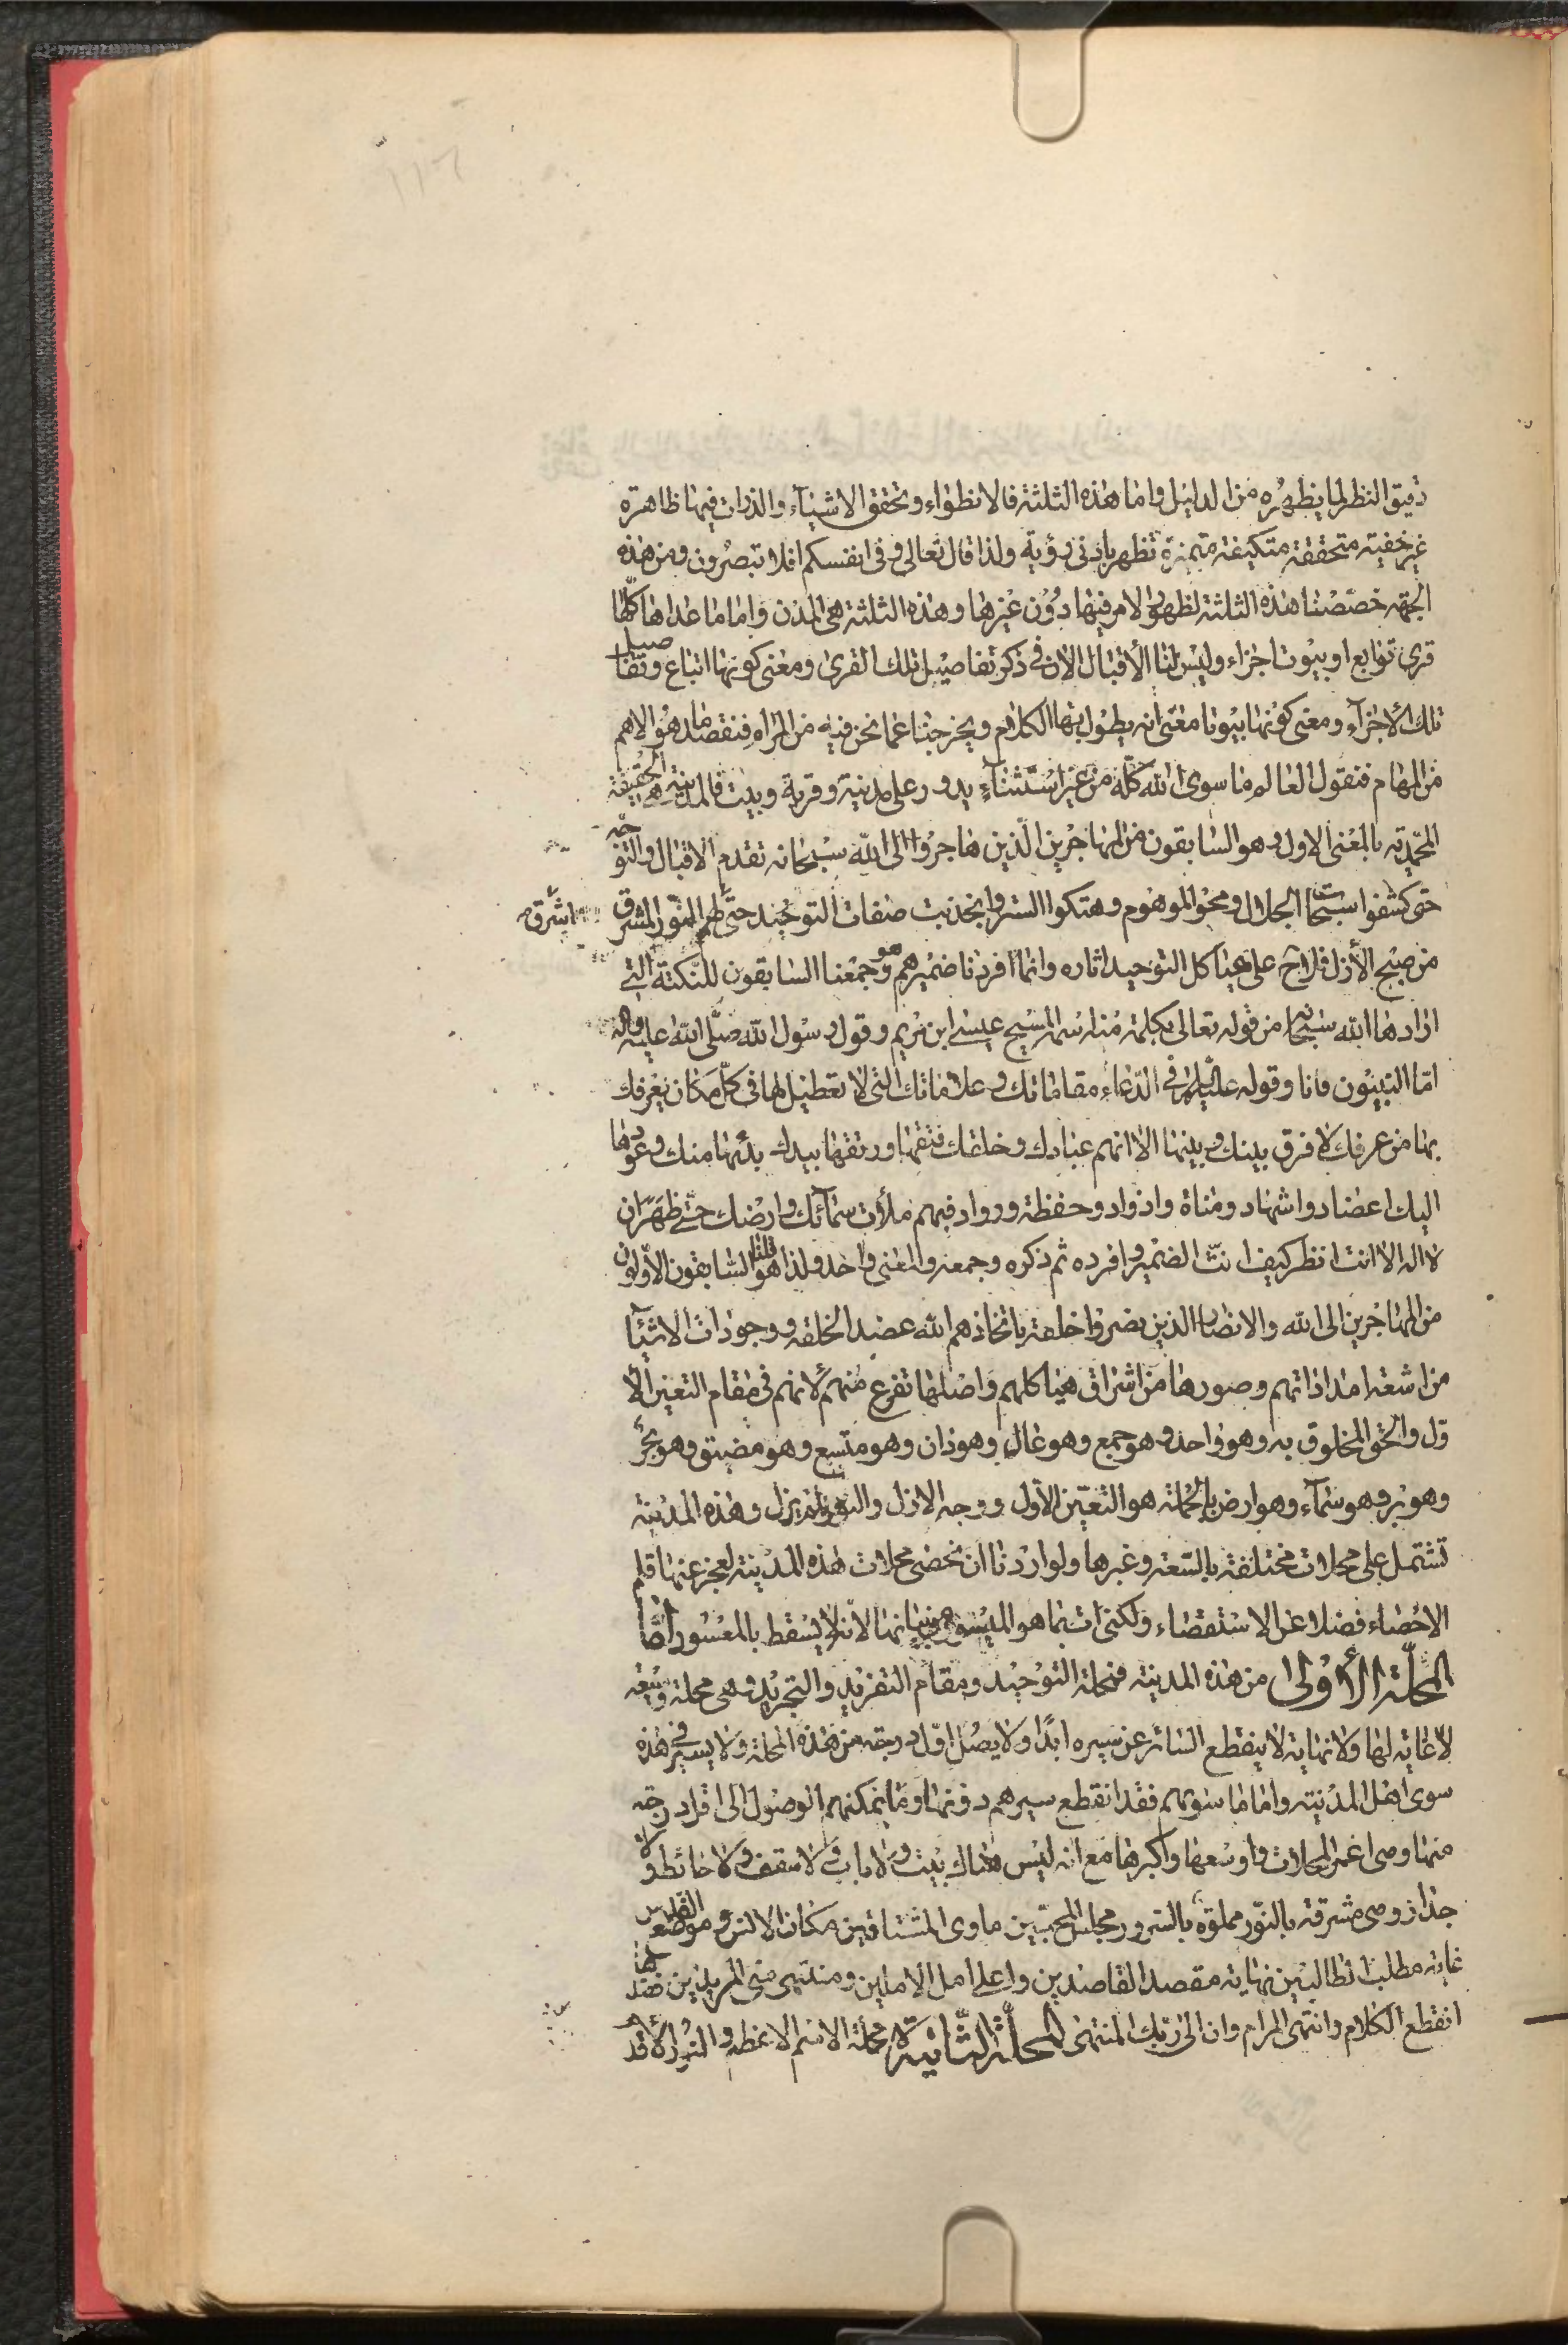 دقيق النظر لما يظهره من الدليل واما هذه الثلثة فالانطواء وتحقق الاشيآء والذرات فيها ظاهرة
غير خفية متحققة متكيفة متميزة تظهر بادنى رؤية ولذا قال تعالى وفى انفسكم افلا تبصرون ومن هذه
الجهة خصصنا هذه الثلثة لظهور الامر فيها دون غيرها وهذه الثلثة هى المدن واما ما عداها كلها
قرى توابع او بيوت اجزاء وليس لنا الاقبال الان فى ذكر تفاصيل تلك القرى ومعنى كونها اتباع وتفاصيل
تلك الاجزاء ومعنى كونها بيوتا معنى انه يطول بها الكلام ويخرجنا عما نحن فيه من المراد فنقصد ما هو الاهم
من المهام فنقول العالم ما سوى الله كله من غير استثنآء يدور على مدينة وقرية وبيت فالمدينة هى الحقيقة
المحمدية بالمعنى الاول وهو السابقون من المهاجرين الذين هاجروا الى الله سبحانه تقدم الاقبال والتوجه
حتى كشفوا سبحات الجلال ومحو الموهوم وهتكوا الستر وانجذبت صفات التوحيد حتى ظهر النور المشرق اشرق
من صبح الأزل فلاح على هياكل التوحيد اثاره وانما افردنا ضميرهم هو وجمعنا السابقون للنكتة التى
ارادها الله سبحانه من قوله تعالى بكلمة منه اسمه المسيح عيسى ابن مريم وقول رسول الله صلى الله عليه واله
اما النبيون فانا وقوله عليه السلام فى الدعاء مقاماتك وعلاماتك التى لا تعطيل لها فى كل مكان يعرفك
بها من عرفك لا فرق بينك وبينها الا انهم عبادك وخلقك فتقها ورتقها بيدك بدئها منك وعودها
اليك اعضاد واشهاد ومناة واذواد وحفظة ورواد فبهم ملأت سمآئك وارضك حتى ظهر ان
لا اله الا انت انظر كيف انث الضمير وافرده ثم ذكره وجمعه والمعنى واحد ولذا قلنا هو السابقون الاولون
من المهاجرين الى الله والانصار الذين نصروا خلقه باتخاذهم الله عضدا لخلقه ووجودات الاشيآء
من اشعة امداداتهم وصورها من اشراق هياكلهم واصلها تفرع منهم لانهم فى مقام التعين الا
ول والحق المخلوق به وهو واحد وهو جمع وهو عال وهو دان وهو متسع وهو مضيق وهو بحر
وهو بر وهو سمآء وهو ارض بالجملة هو التعين الاول ووجه الازل لم يزل وهذه المدينة
تشتمل على محلات مختلفة بالسعة وغيرها ولو اردنا ان نحصى محلات هذه المدينة لعجز عنها قلم
الاحصاء فضلا عن الاستقصاء ولكنى ات بما هو الميسور من بيانها لانه لا يسقط بالمعسور اما
المحلة الأولى من هذه المدينة فمحلة التوحيد ومقام التفريد والتجريد وهى محلة وسيعة
لا غاية لها ولا نهاية لا ينقطع السائر عن سيره ابدا ولا يصل اول درجة من هذه المحلة ولا يسير فى هذه
سوى اهل المدينة واما ما سويهم فقد انقطع سيرهم دونها وما يمكنهم الوصول الى اول درجة
منها وهى اعمر المحلات واوسعها واكبرها مع انه ليس هناك بيت ولا باب ولا سقف ولا حائط ولا
جدار وهى مشرقة بالنور مملوة بالسرور مجلس المحبين ماوى المشتاقين مكان الانس وموضع القدس
غاية مطلب الطالبين نهاية مقصد القاصدين واعلى امل الاملين ومنتهى منى المريدين فعندها
انقطع الكلام وانتهى المرام وان الى ربك المنتهى المحلة الثانية محلة الاسم الاعظم والنور الاقدم